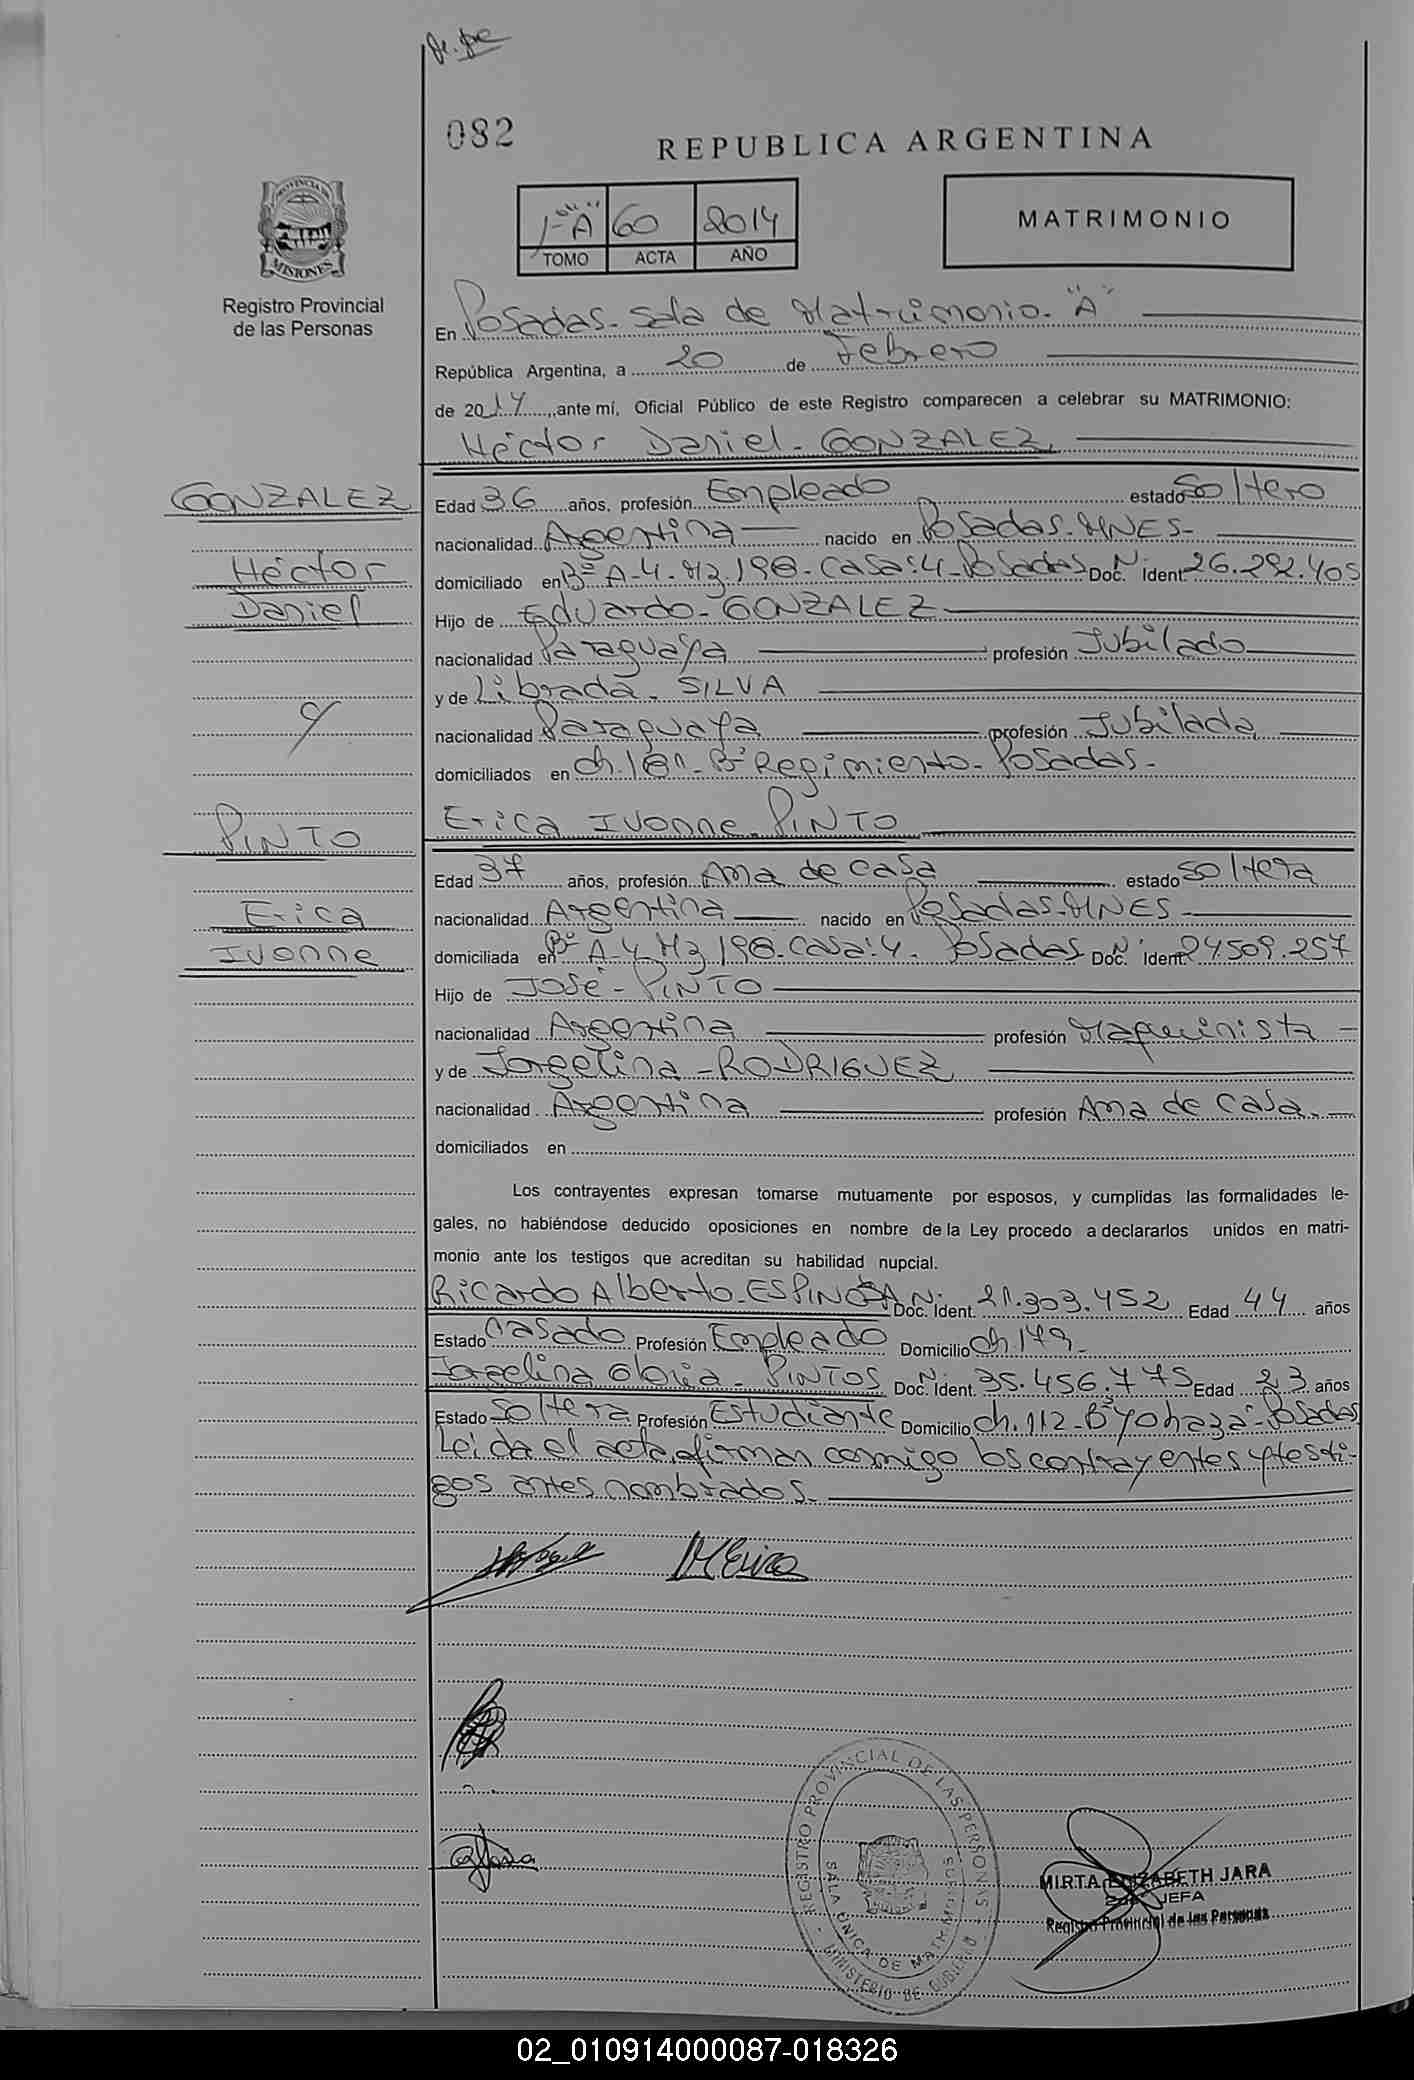 082
REPUBLICA ARGENTINA
PROVINCIA DE
MISIONES
Registro Provincial
de las Personas
1-"A" 60 2014
TOMO ACTA AÑO
MATRIMONIO
En Posadas- Sala de Matrimonio- "A"
República Argentina, a 20 de Febrero
de 2014, ante mí, Oficial Público de este Registro comparecen a celebrar su MATRIMONIO:
Héctor Daniel- GONZALEZ
GONZALEZ
Héctor
Daniel
Edad 36 años, profesión Empleado estado Soltero
nacionalidad Argentina nacido en Posadas-MNES-
domiciliado en Bº A-4-Mz.198-Casa:4-Posadas Doc. Nº Ident. 26.292.405
Hijo de Eduardo- GONZALEZ
nacionalidad Paraguaya profesión Jubilado
y de Librada- SILVA
nacionalidad Paraguaya profesión Jubilada
domiciliados en Bº Regimiento- Posadas-
Erica Ivonne- PINTO
y
PINTO
Erica
Ivonne
Edad 37 años, profesión Ama de casa estado soltera
nacionalidad Argentina nacido en Posadas-MNES-
domiciliada en Bº A-4 Mz 198-Casa:4- Posadas Doc. Nº Ident. 24.509.257
Hijo de José- PINTO
nacionalidad Argentina profesión Maquinista -
y de Jorgelina -RODRIGUEZ
nacionalidad Argentina profesión Ama de casa.-
domiciliados en
Los contrayentes expresan tomarse mutuamente por esposos, y cumplidas las formalidades le-
gales, no habiéndose deducido oposiciones en nombre de la Ley procedo a declararlos unidos en matri-
monio ante los testigos que acreditan su habilidad nupcial.
Ricardo Alberto- ESPINOSA Doc. Nº Ident. 21.303.452 Edad 44 años
Estado Casado Profesión Empleado Domicilio Ch.149-
Jorgelina Gloria- PINTOS Doc. Nº Ident. 35.456.775 Edad 23 años
Estado Soltera Profesión Estudiante Domicilio Ch.112-Bº Yohazá-Posadas
Leída el acta, firman conmigo los contrayentes y testi-
gos antes nombrados.-
REGISTRO PROVINCIAL DE LAS PERSONAS
SALA ÚNICA DE MATRIMONIOS
MINISTERIO DE GOBIERNO
MIRTA ELIZABETH JARA
JEFA
Registro Provincial de las Personas
02_010914000087-018326